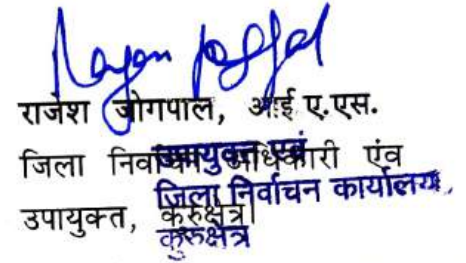 राजेश जोगपाल, आई ए.एस.
जिला निर्वाचन अधिकारी एंव
उपायुक्त, कुरुक्षेत्र।
उपायुक्त एवं
जिला निर्वाचन कार्यालय,
कुरुक्षेत्र